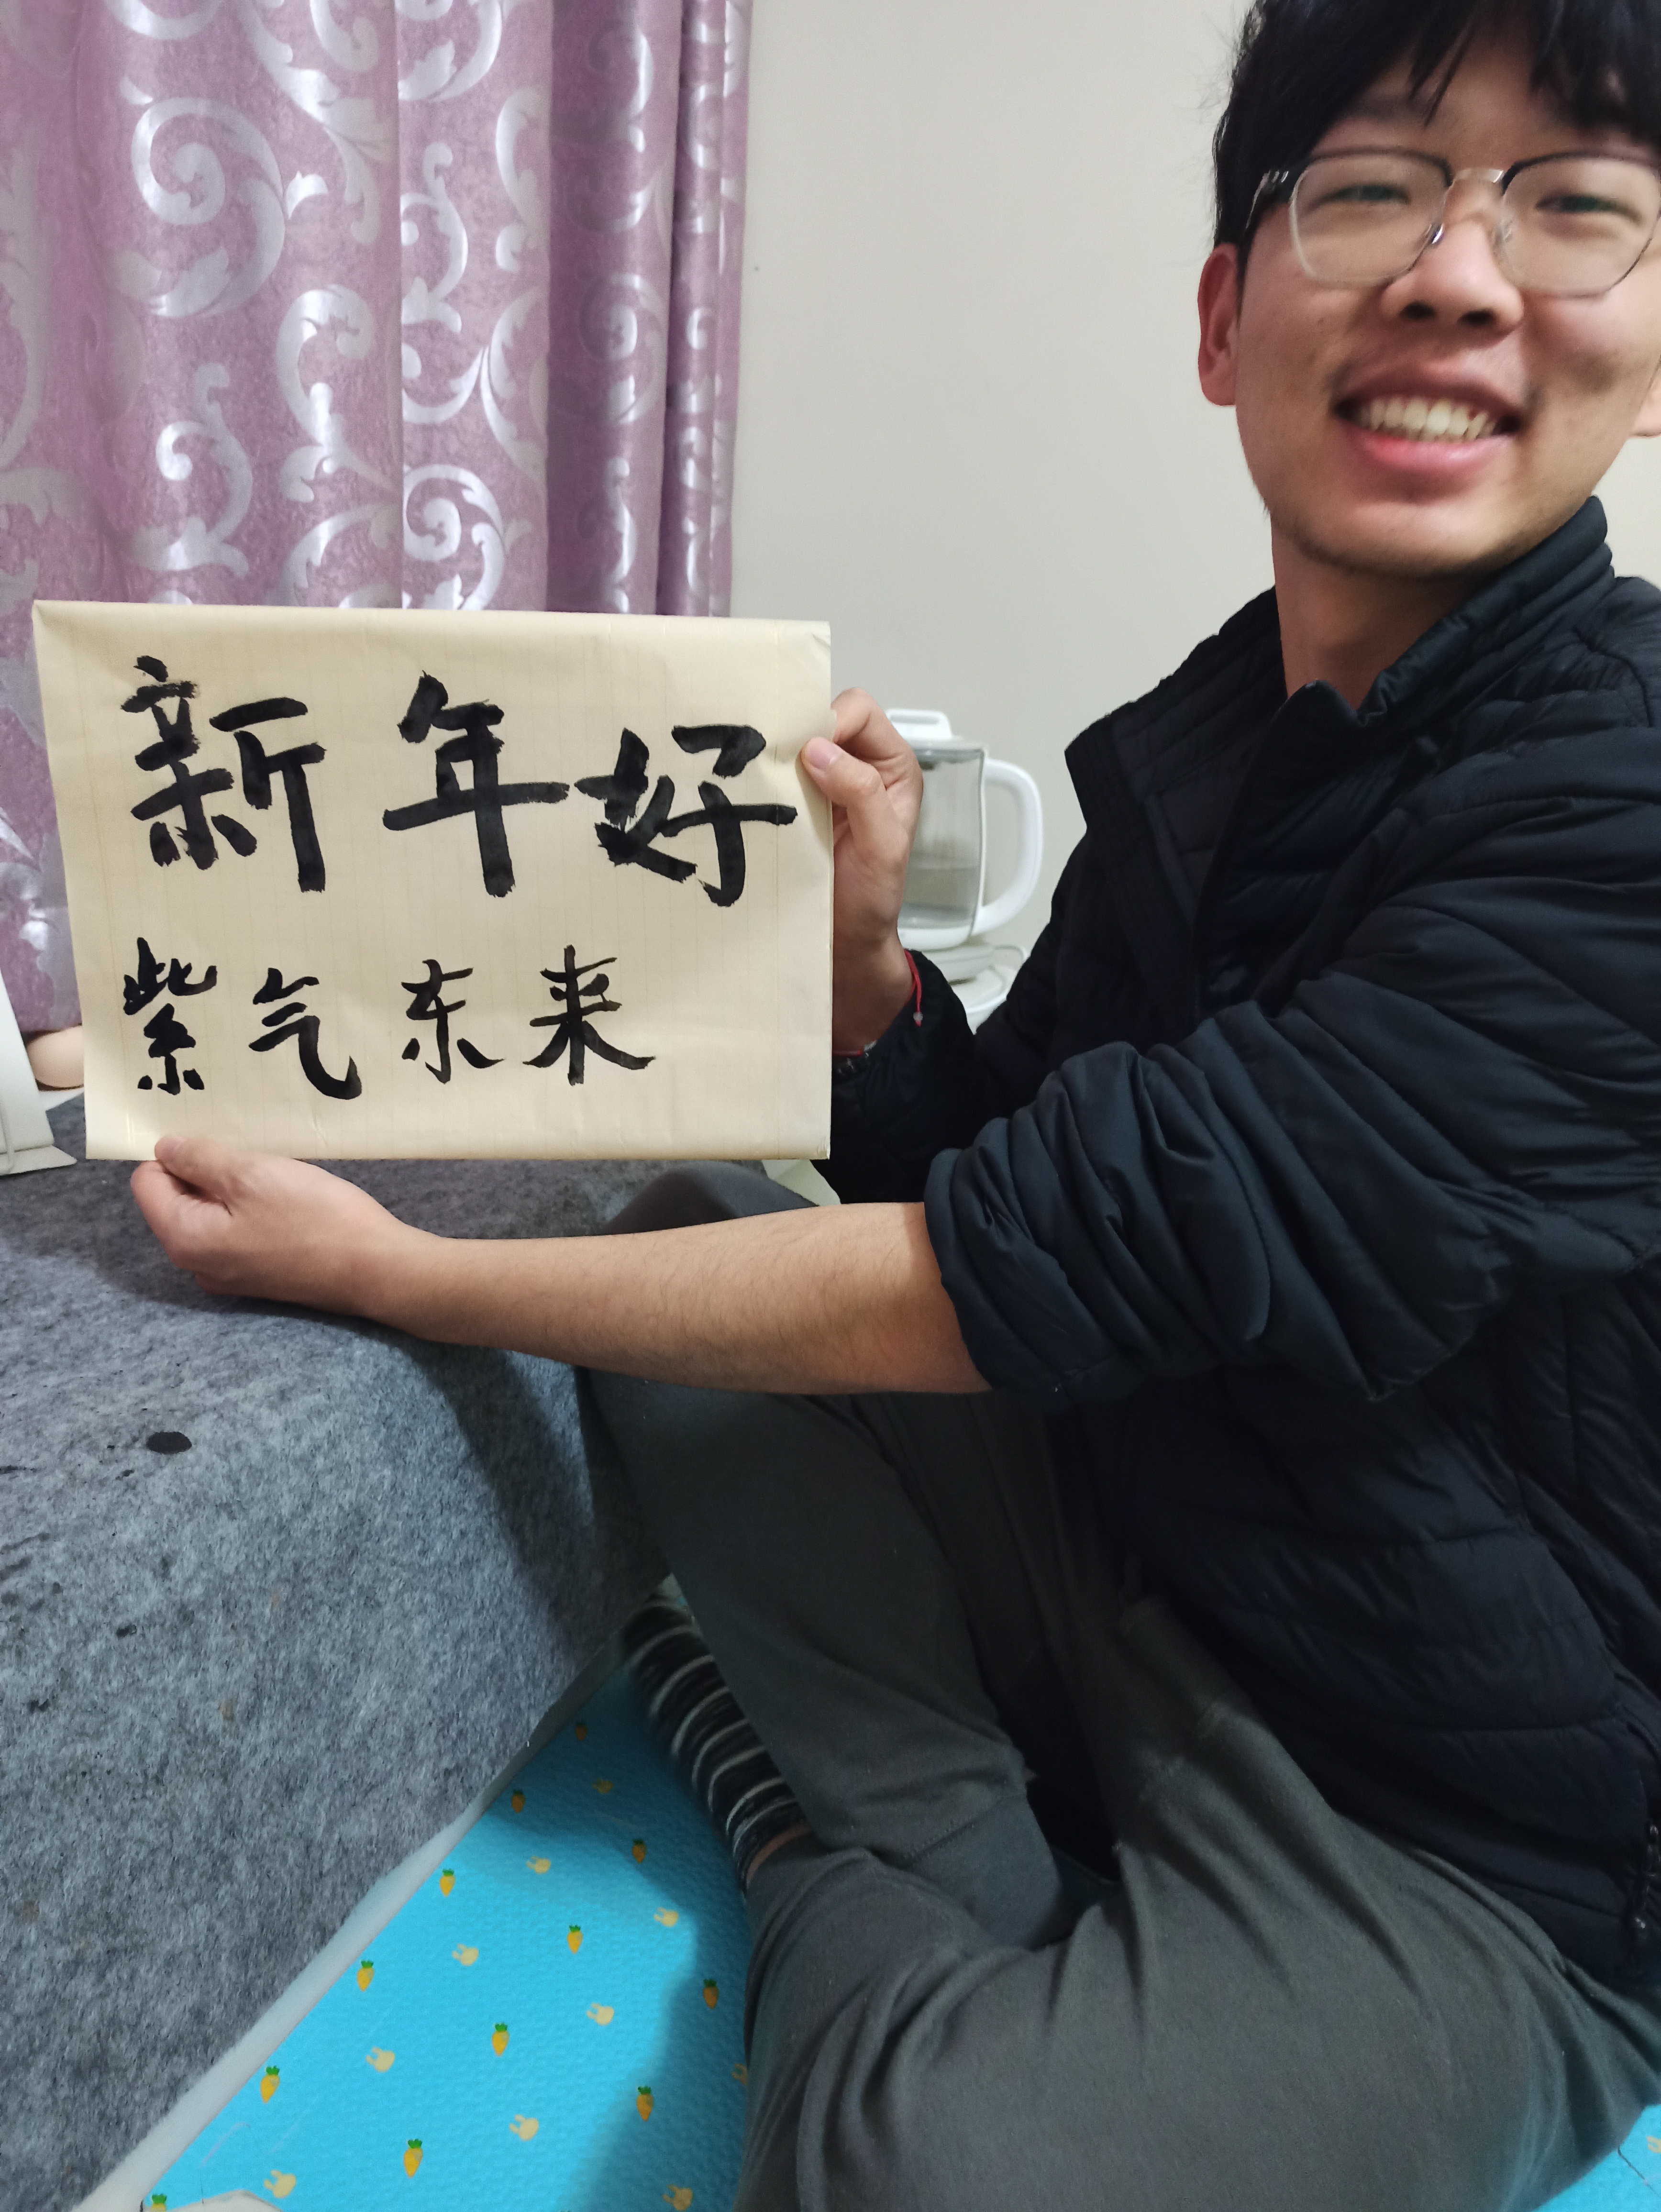 新年好
紫气东来